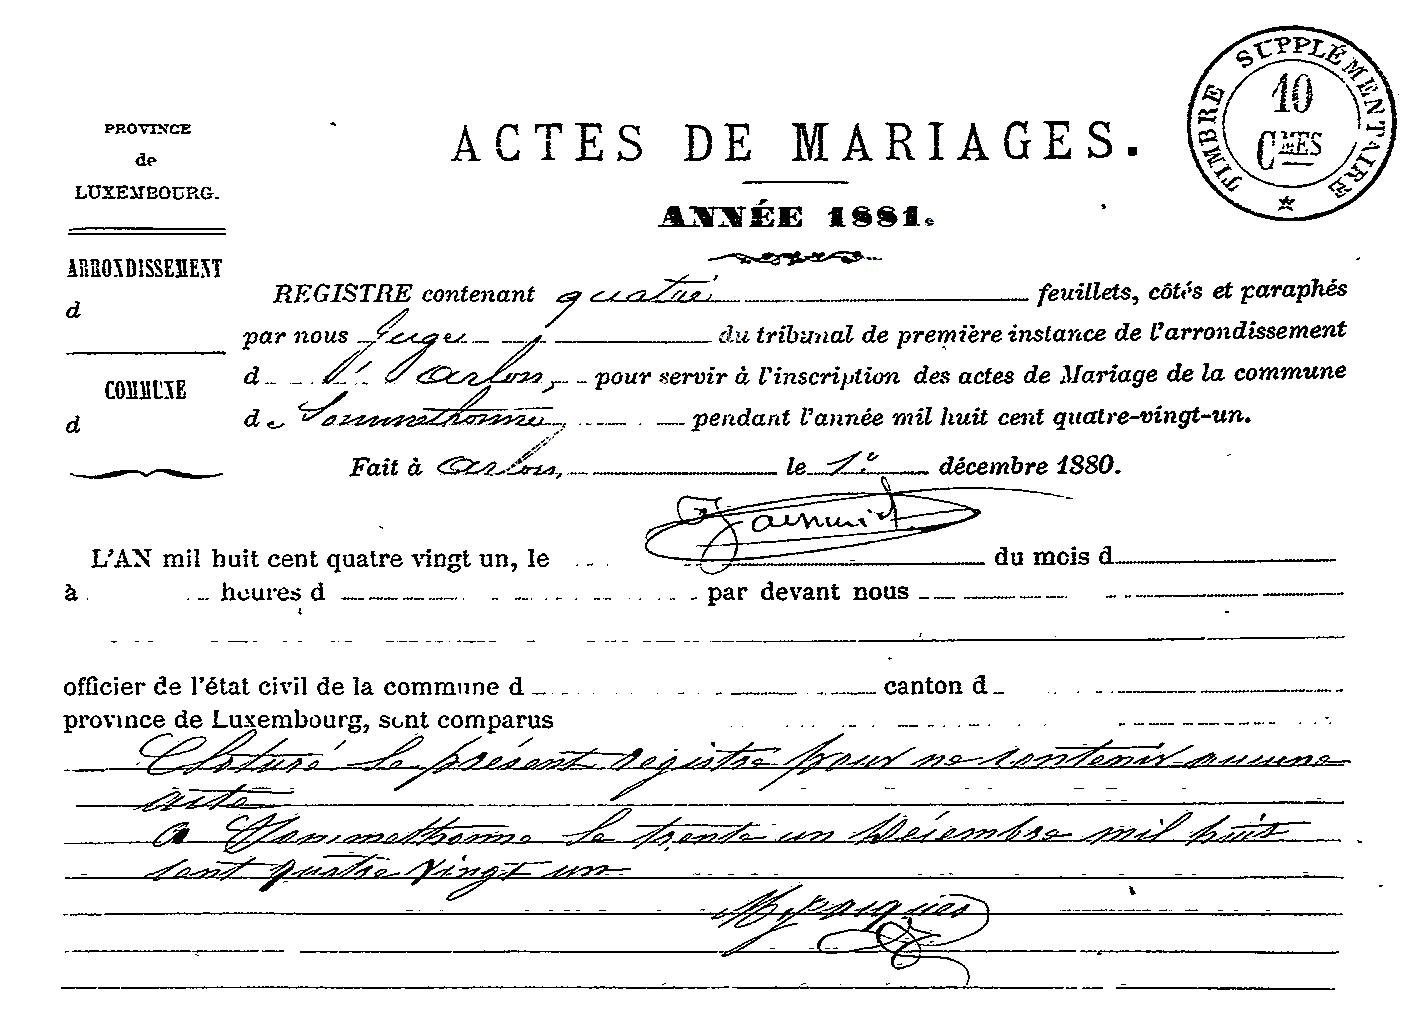 TIMBRE SUPPLÉMENTAIRE
10
CMES
PROVINCE
de
LUXEMBOURG.
ARRONDISSEMENT
d
COMMUNE
d
ACTES DE MARIAGES.
ANNÉE 1881.
REGISTRE contenant quatre feuillets, côtés et paraphés
par nous Juge du tribunal de première instance de l'arrondissement
d d'Arlon, pour servir à l'inscription des actes de Mariage de la commune
de Sommethonne, pendant l'année mil huit cent quatre-vingt-un.
Fait à Arlon, le 1er décembre 1880.
L'AN mil huit cent quatre vingt un, le du mois d
à heures d par devant nous
officier de l'état civil de la commune d canton d
province de Luxembourg, sont comparus
Cloturé le présent registre pour ne contenir aucune
acte
A Sommethonne le trente un Décembre mil huit
cent quatre vingt un